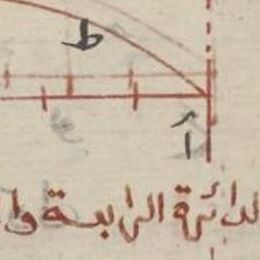 ط
أ
الدائرة الرابعة وا